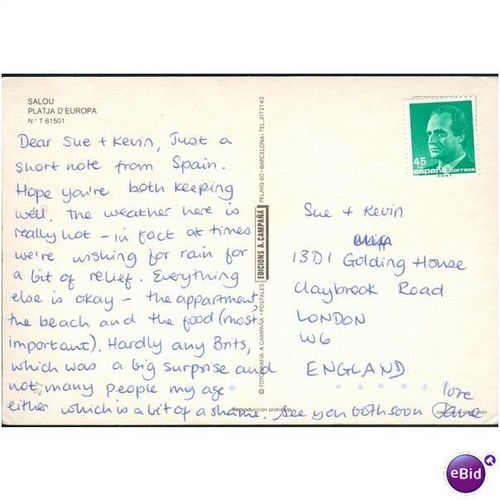 SALOU
PLATJA D'EUROPA
N.º T 61501
Dear Sue + Kevin, Just a
short note from Spain.
Hope you're both keeping
well. The weather here is
really hot - in fact at times
we're wishing for rain for
a bit of relief. Everything
else is okay - the appartment,
the beach and the food (most
important). Hardly any Brits,
which was a big surprise and
not many people my age
either which is a bit of a shame. See you both soon
love
© FOTOGRAFIA A. CAMPAÑA - POSTALES EDICIONS A. CAMPAÑA PELAYO 60 - BARCELONA - TEL. 317 21 43
Reproducción prohibida
45
españa correos
Sue + Kevin
13D1 Golding House
Claybrook Road
LONDON
W6
ENGLAND
eBid